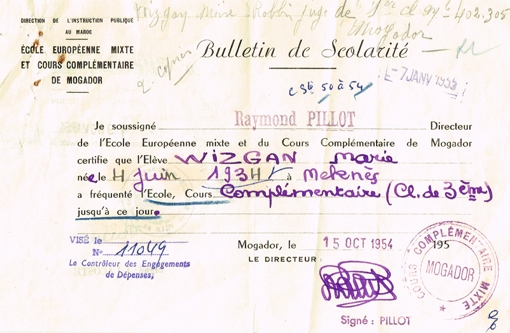 Wizgan Moïse Rabbin Juge de 1er cl. N° 402.305
Mogador
DIRECTION DE L'INSTRUCTION PUBLIQUE
AU MAROC
ÉCOLE EUROPÉENNE MIXTE
ET COURS COMPLÉMENTAIRE
DE MOGADOR
Bulletin de Scolarité
2 copies
7 JANV 1955
50 à 54
Je soussigné Raymond PILLOT Directeur
de l'Ecole Européenne mixte et du Cours Complémentaire de Mogador
certifie que l'Elève WIZGAN Marie
née le 4 Juin 1934 à Meknès
a fréquenté l'Ecole, Cours Complémentaire (Cl. de 3ème)
jusqu'à ce jour
VISÉ le
N° 11049
Le Contrôleur des Engagements
de Dépenses,
Mogador, le 15 OCT 1954 195
LE DIRECTEUR
Signé : PILLOT
COURS COMPLÉMENTAIRE MIXTE
MOGADOR